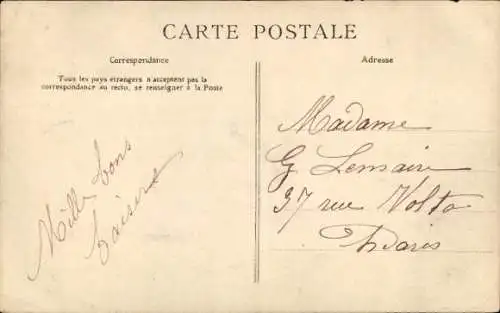 CARTE POSTALE
Correspondance
Adresse
Tous les pays étrangers n'acceptent pas la
correspondance au recto, se renseigner à la Poste
Mille bons
baisers
Madame
G Lemaire
37 rue Volta
Paris